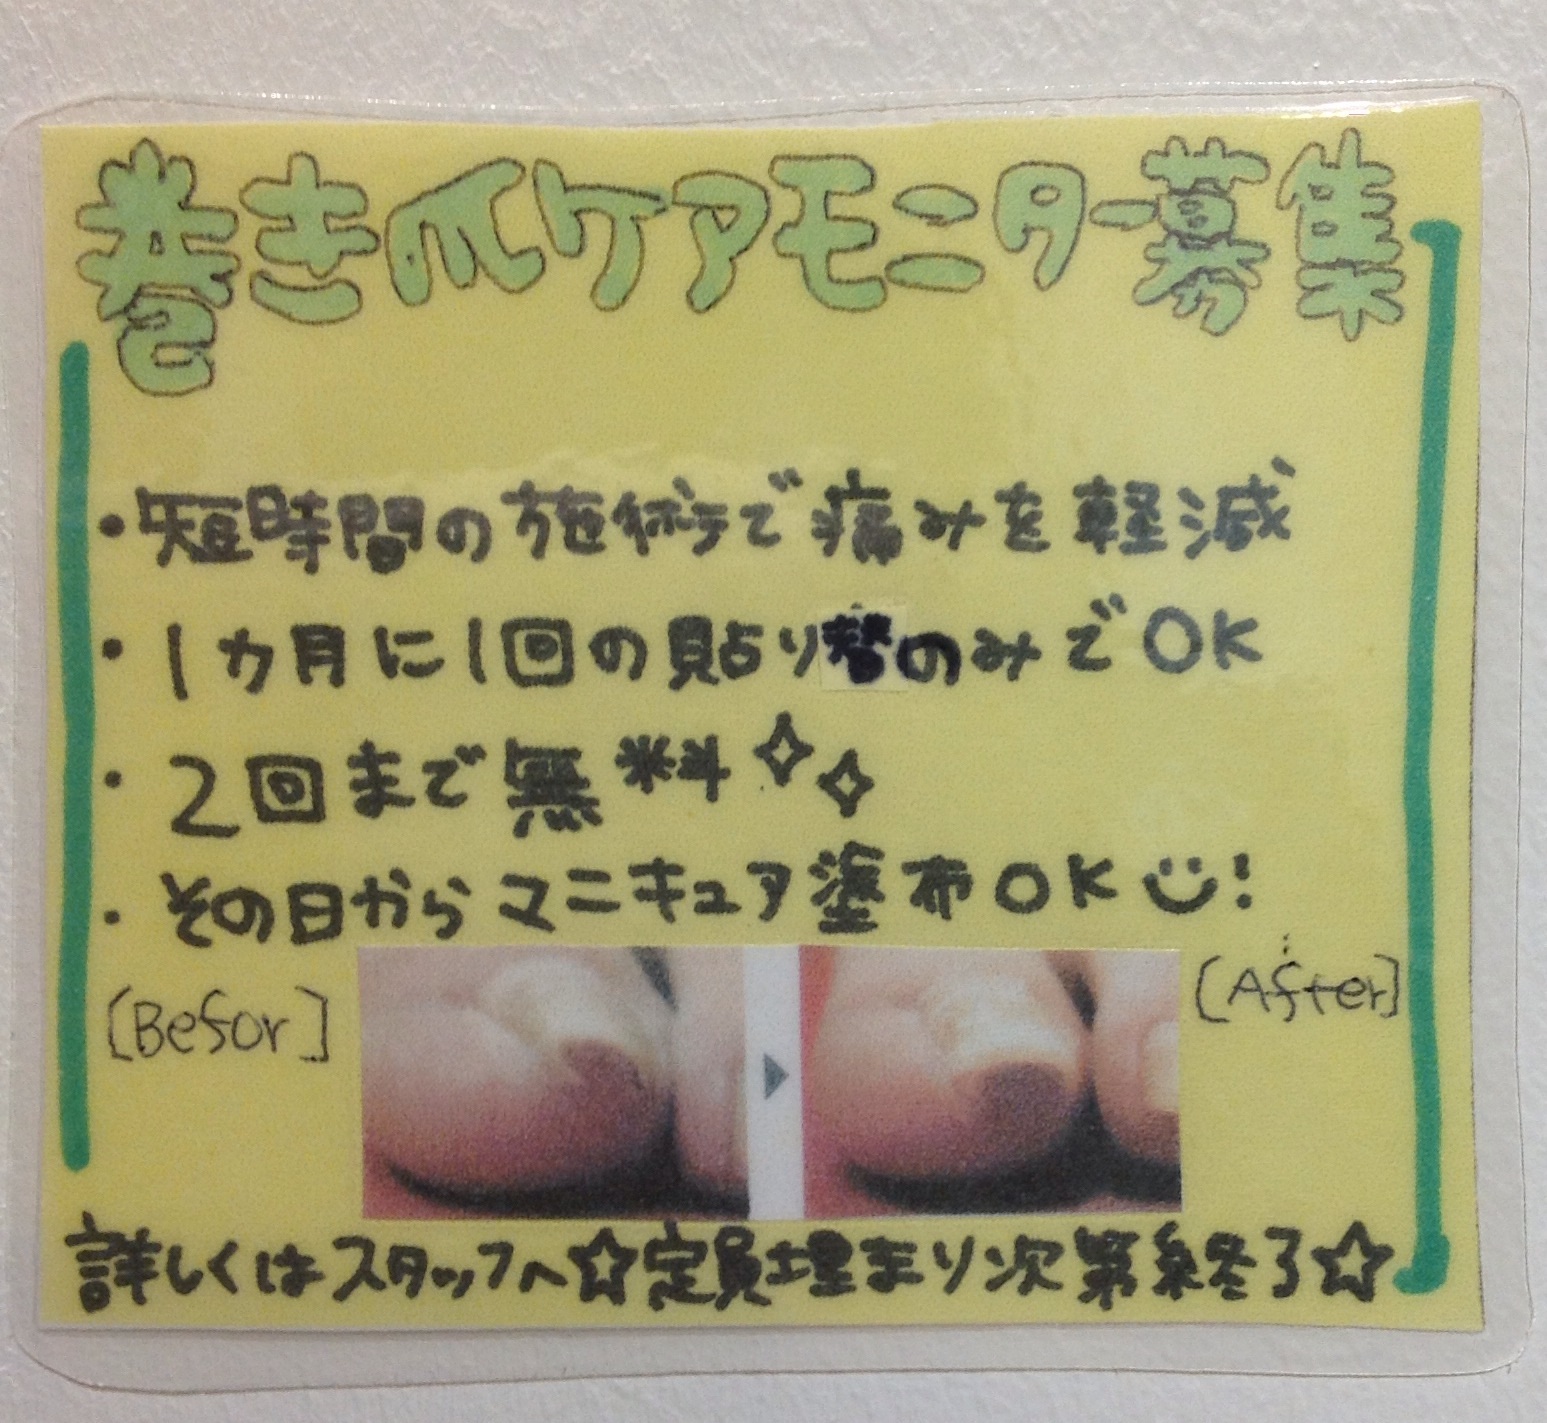 巻き爪ケアモニター募集
・短時間の施術で痛みを軽減
・1カ月に1回の貼り替のみでOK
・2回まで無料
・その日からマニキュア塗布OK!
[Befor]
[After]
詳しくはスタッフへ☆定員埋まり次第終了☆